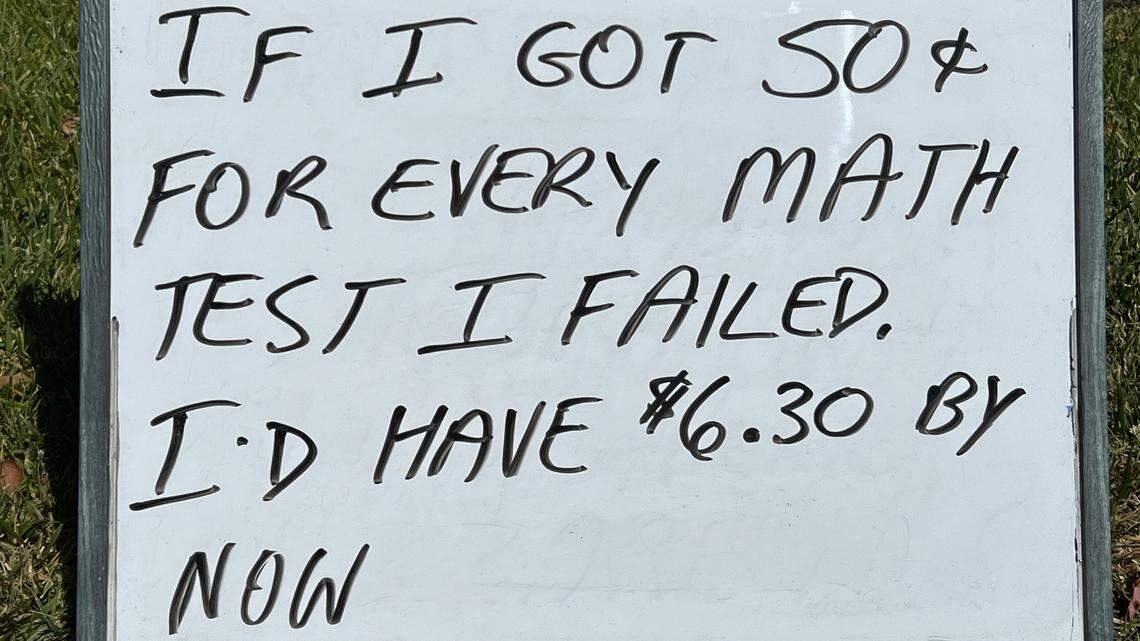 IF I GOT 50¢
FOR EVERY MATH
TEST I FAILED.
I'D HAVE $6.30 BY
NOW